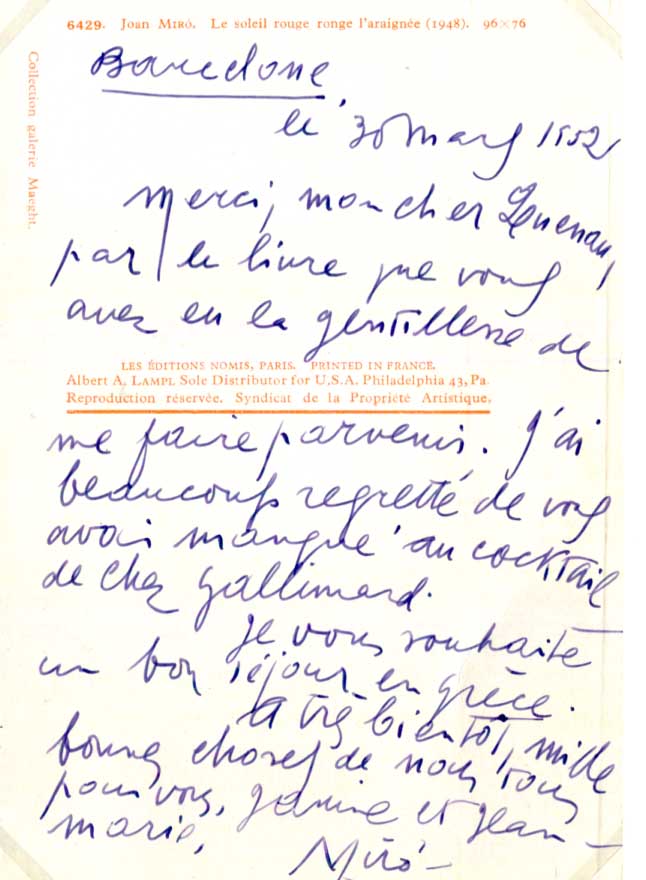 6429. Joan Miró. Le soleil rouge ronge l'araignée (1948). 96×76
Collection galerie Maeght.
Barcelone,
le 30 mars 1952
Merci, mon cher Queneau,
par le livre que vous
avez eu la gentillesse de
LES ÉDITIONS NOMIS, PARIS. PRINTED IN FRANCE.
Albert A. Lampl Sole Distributor for U.S.A. Philadelphia 43, Pa.
Reproduction réservée. Syndicat de la Propriété Artistique.
me faire parvenir. J'ai
beaucoup regretté de vous
avoir manqué au cocktail
de chez Gallimard.
Je vous souhaite
un bon séjour en grèce.
A très bientôt, mille
bonnes choses de nous tous
pour vous, Janine et Jean-
marie,
Miró-